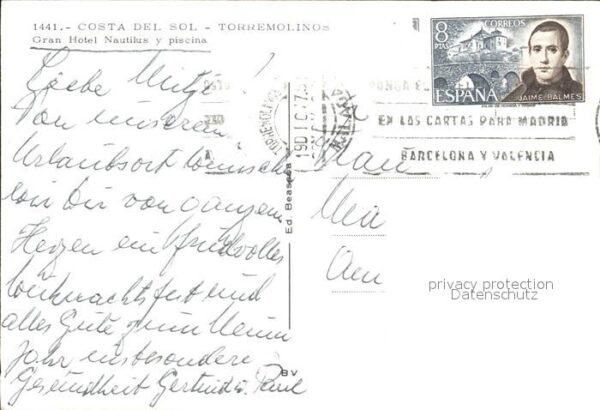 1441.- COSTA DEL SOL - TORREMOLINOS
Gran Hotel Nautilus y piscina
8
PTAS
CORREOS
ESPAÑA
JAIME BALMES
Liebe Mitzi!
Von unserem
Urlaubsort wünschen
wir Dir von ganzem
Herzen ein friedvolles
Weihnachtsfest und
alles Gute zum Neuen
Jahr insbesondere
Gesundheit Gertrude Paul
TORREMOLINOS
19 DIC
MALAGA
PONGA EL
EN LAS CARTAS PARA MADRID
BARCELONA Y VALENCIA
Ed. Beascoa
BV
Frau
privacy protection
Datenschutz